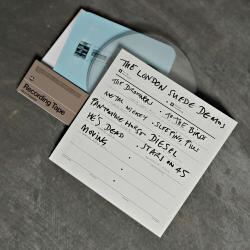 THE LONDON SUEDE DEMOS
THE DROWNERS
TO THE BIRDS
METAL MICKEY
SLEEPING PILLS
PANTOMIME HORSE
DIESEL
HE'S DEAD
STARS ON 45
MOVING
Recording Tape